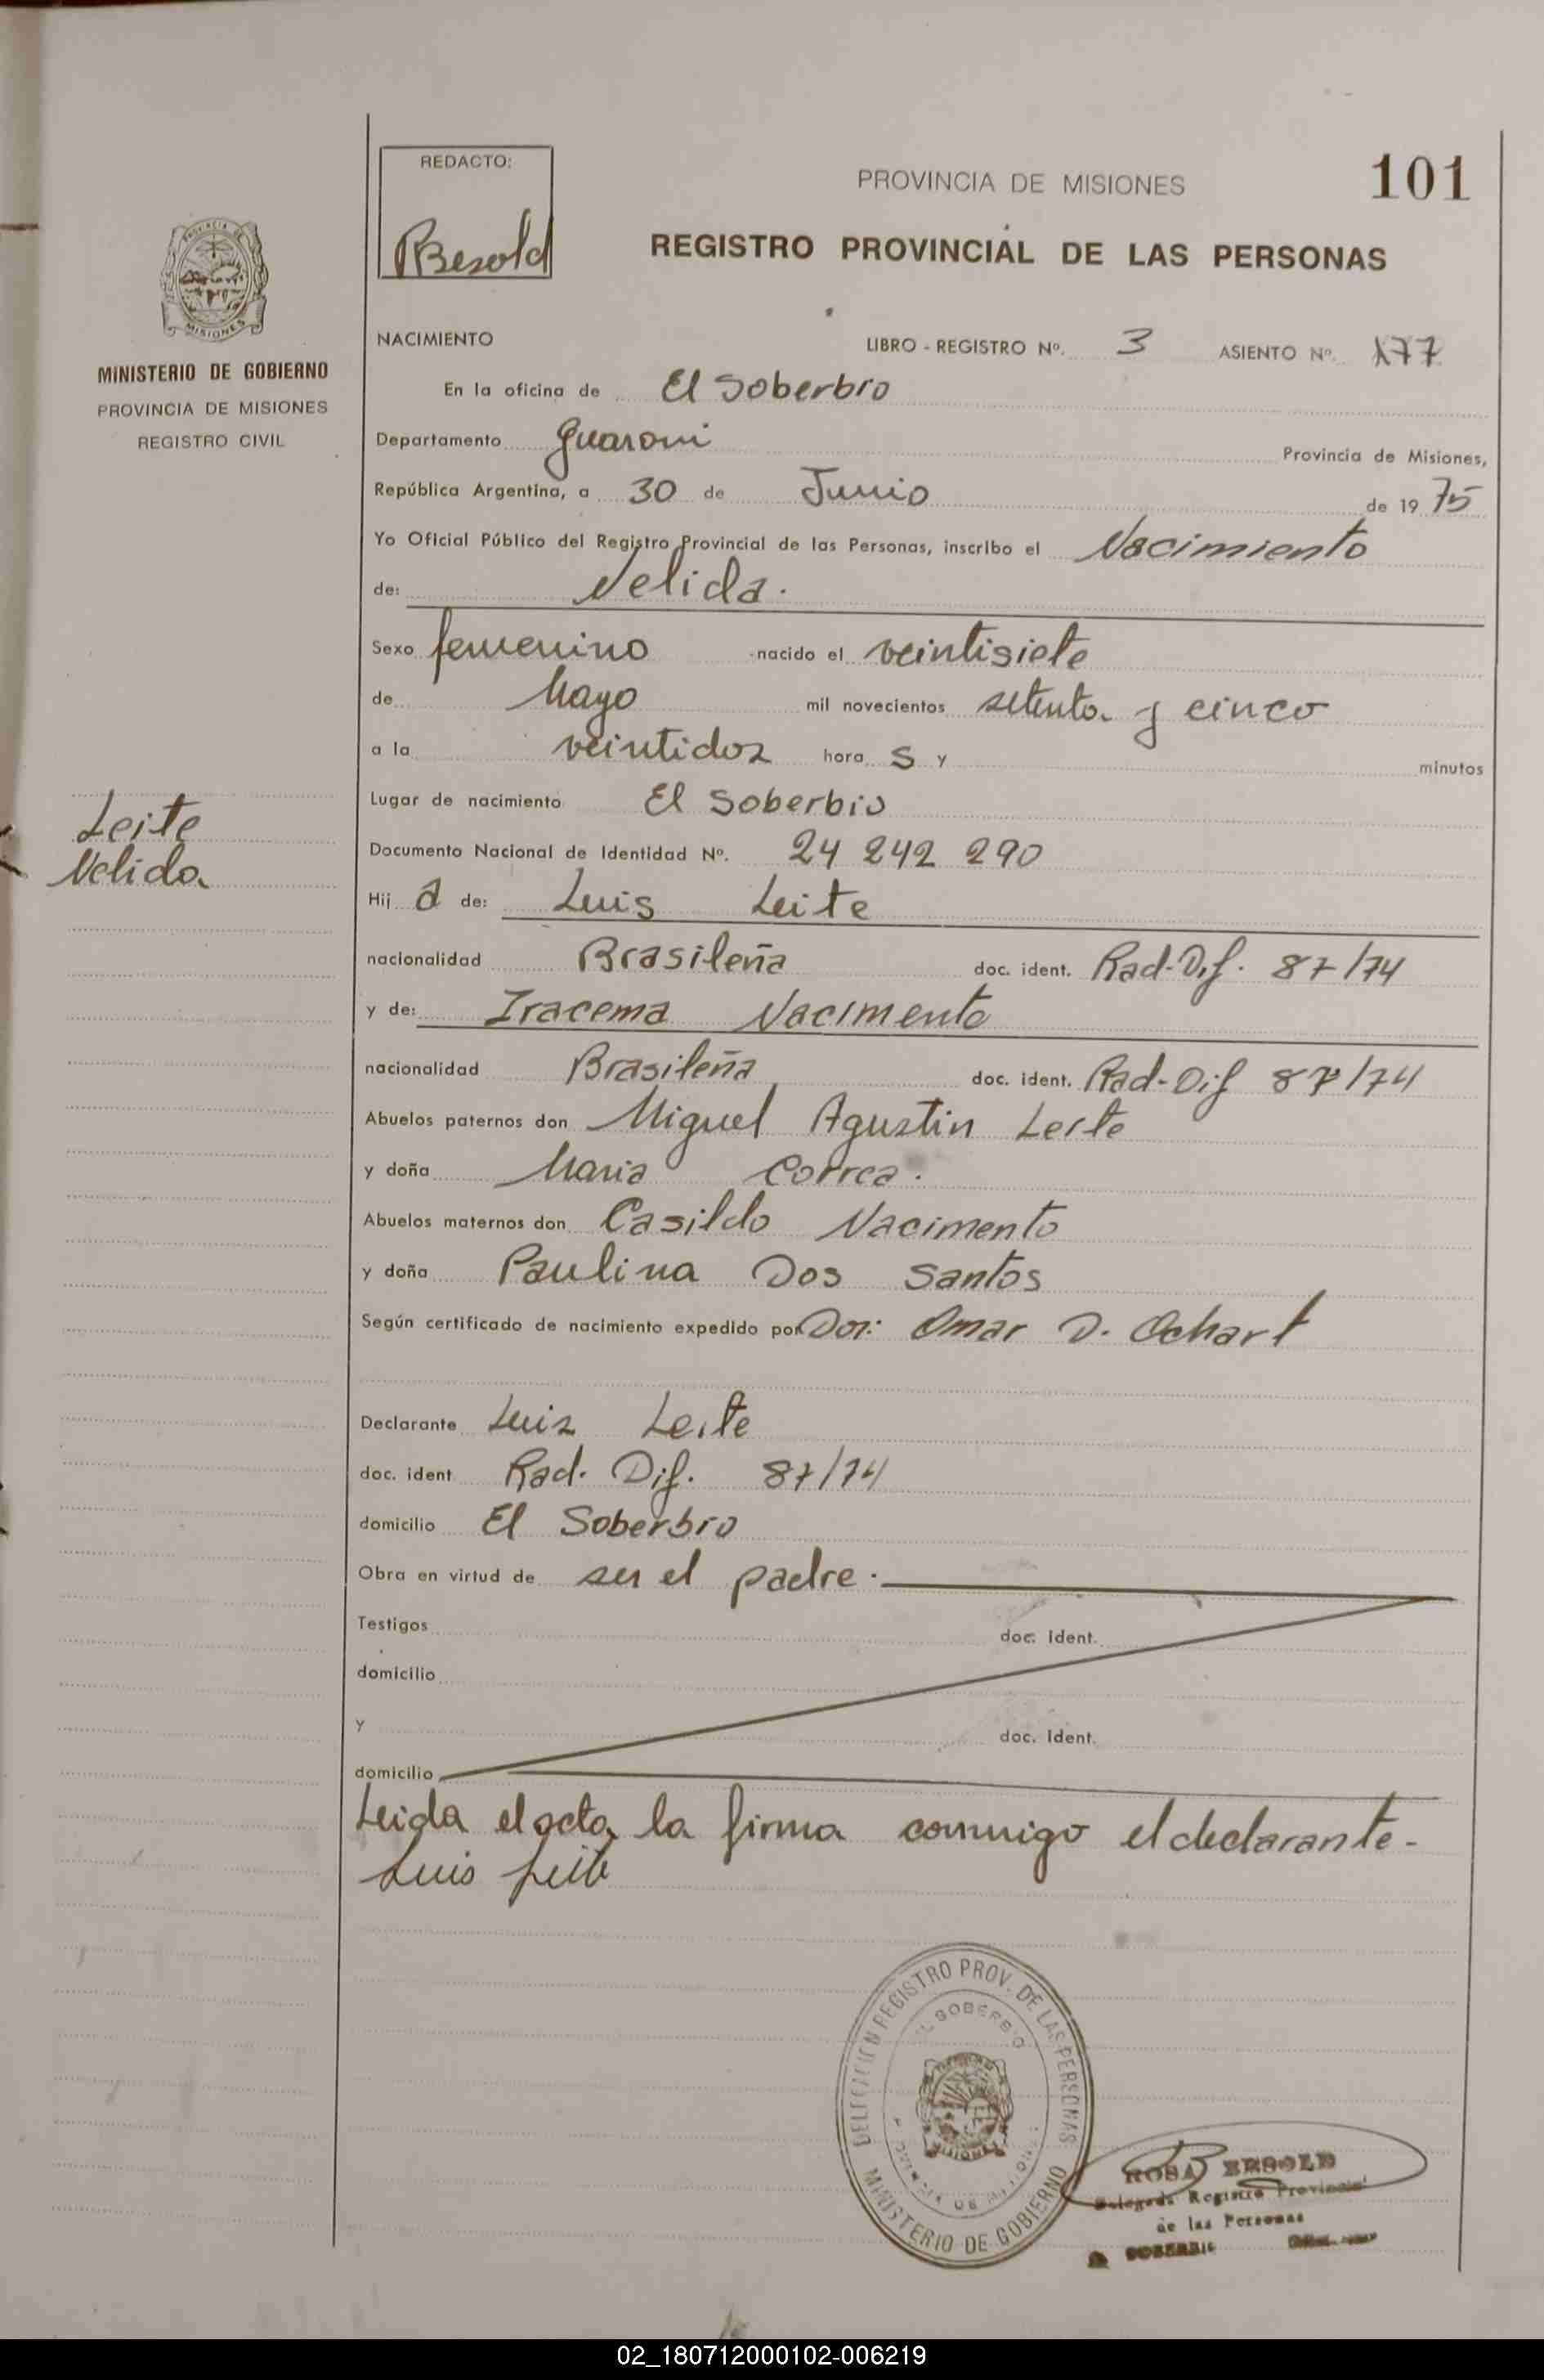 REDACTO:
Besold
PROVINCIA DE MISIONES
101
REGISTRO PROVINCIAL DE LAS PERSONAS
MISIONES
MINISTERIO DE GOBIERNO
PROVINCIA DE MISIONES
REGISTRO CIVIL
NACIMIENTO LIBRO - REGISTRO Nº. 3 ASIENTO Nº. 177
En la oficina de El Soberbio
Departamento Guaroni Provincia de Misiones,
República Argentina, a 30 de Junio de 19 75
Yo Oficial Público del Registro Provincial de las Personas, inscribo el Nacimiento
de: Nelida.
Sexo femenino nacido el veintisiete
de Mayo mil novecientos setenta y cinco
a la veintidos hora s y minutos
Lugar de nacimiento El Soberbio
Leite
Nelida
Documento Nacional de Identidad Nº. 24 242 290
Hij a de: Luis Leite
nacionalidad Brasileña doc. ident. Rad-Dif. 87/74
y de: Iracema Nacimento
nacionalidad Brasileña doc. ident. Rad-Dif 87/74
Abuelos paternos don Miguel Agustin Leite
y doña Maria Correa.
Abuelos maternos don Casildo Nacimento
y doña Paulina Dos Santos
Según certificado de nacimiento expedido por Dor: Omar D. Ochart
Declarante Luiz Leite
doc. ident Rad. Dif. 87/74
domicilio El Soberbio
Obra en virtud de ser el padre.
Testigos doc. ident.
domicilio
y doc. ident.
domicilio
Leida el acta, la firma conmigo el declarante-
Luis Leite
DELEGACION REGISTRO PROV. DE LAS PERSONAS
EL SOBERBIO
PROVINCIA DE MISIONES
MINISTERIO DE GOBIERNO
ROSA BESOLD
Delegada Registro Provincial
de las Personas
SOBERBIO
02_180712000102-006219